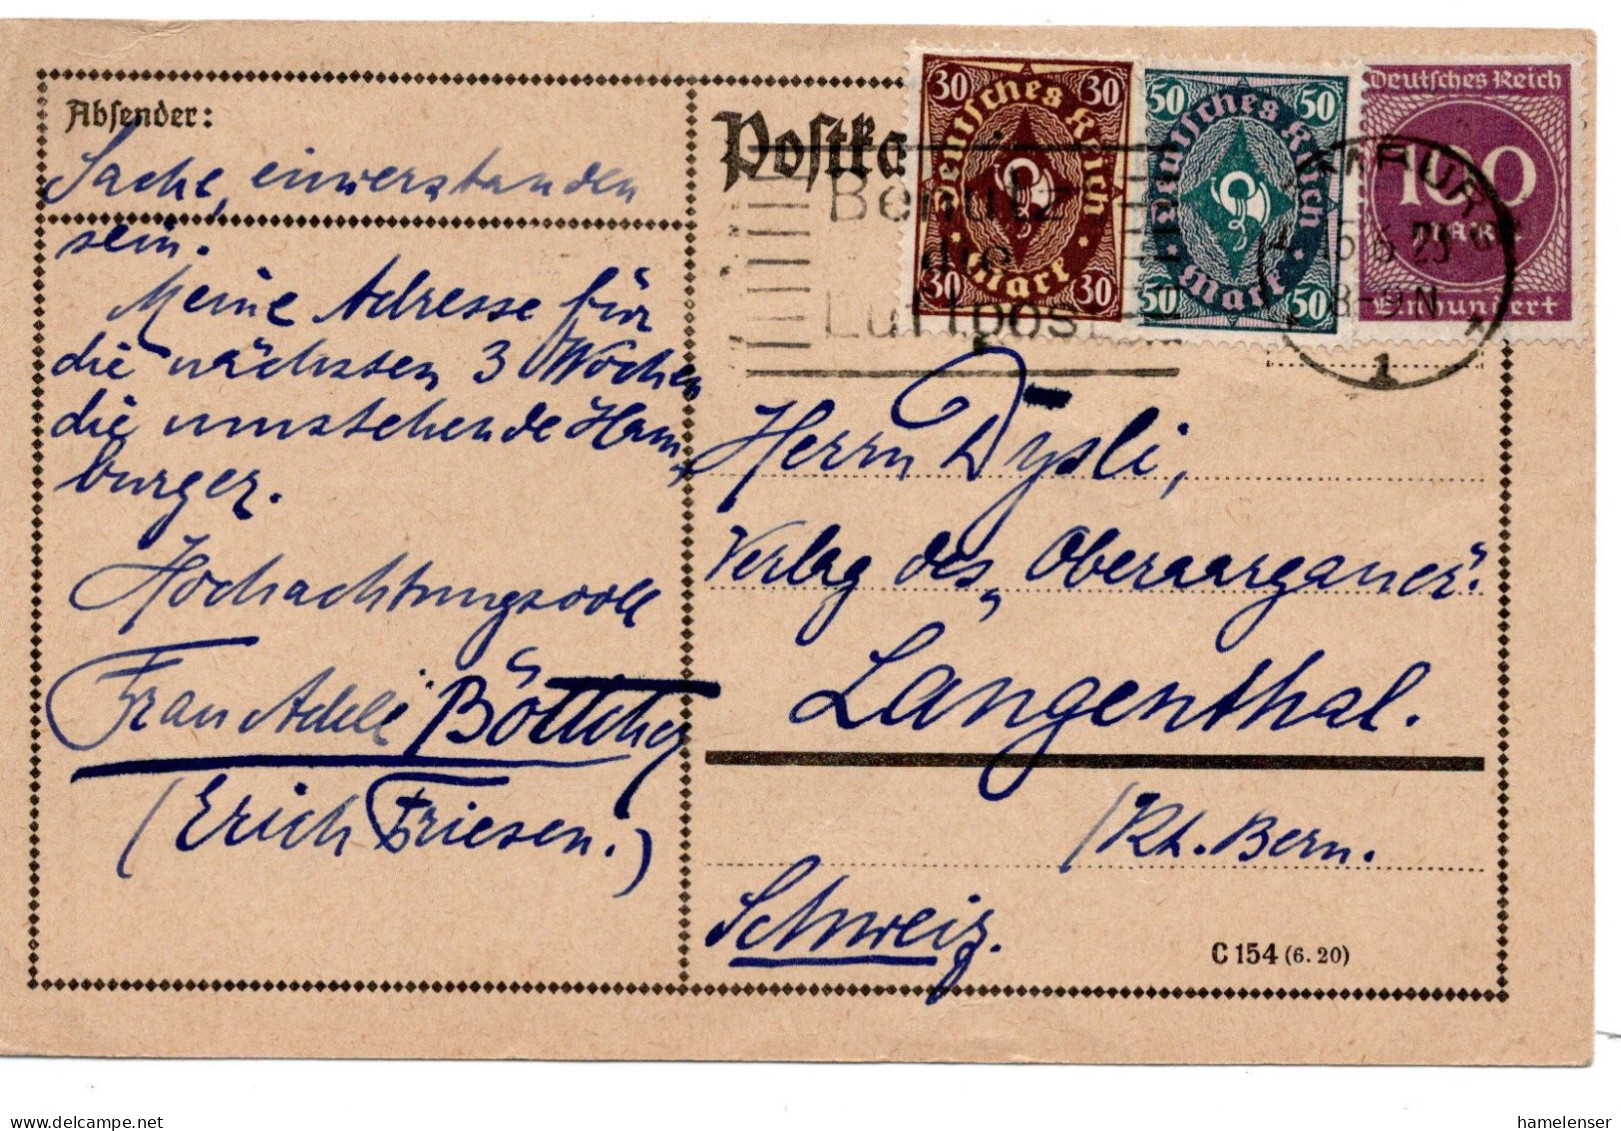 Absender:
Sache, einverstanden
sein.
Meine Adresse für
die nächsten 3 Wochen
die umstehende Ham-
burger.
Hochachtungsvoll
Frau Adele Böttcher
(Erich Friesen.)
Postka
30 30
Deutsches Reich
Mark
30 30
50 50
Deutsches Reich
Mark
50 50
Deutsches Reich
100
MARK
Einhundert
Benutz
die
Luftpost
8-9N
1
Herrn Dysli,
Verlag des „Oberaarganer".
Langenthal.
/Kt. Bern.
Schweiz.
C 154 (6. 20)
hamelenser